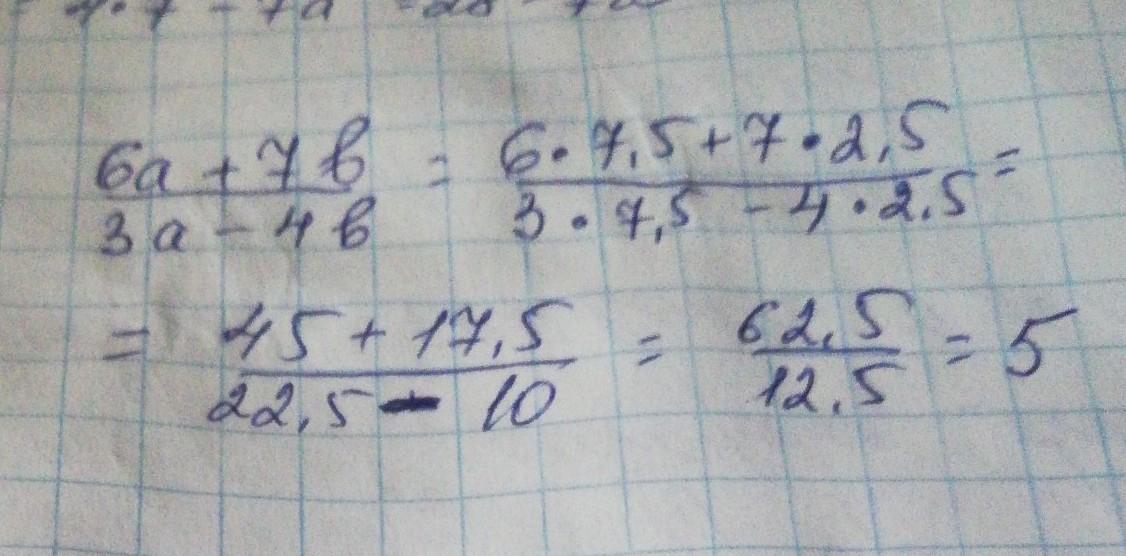 6a + 7b / 3a - 4b = 6·7,5 + 7·2,5 / 3·7,5 - 4·2,5 =
= 45 + 17,5 / 22,5 - 10 = 62,5 / 12,5 = 5